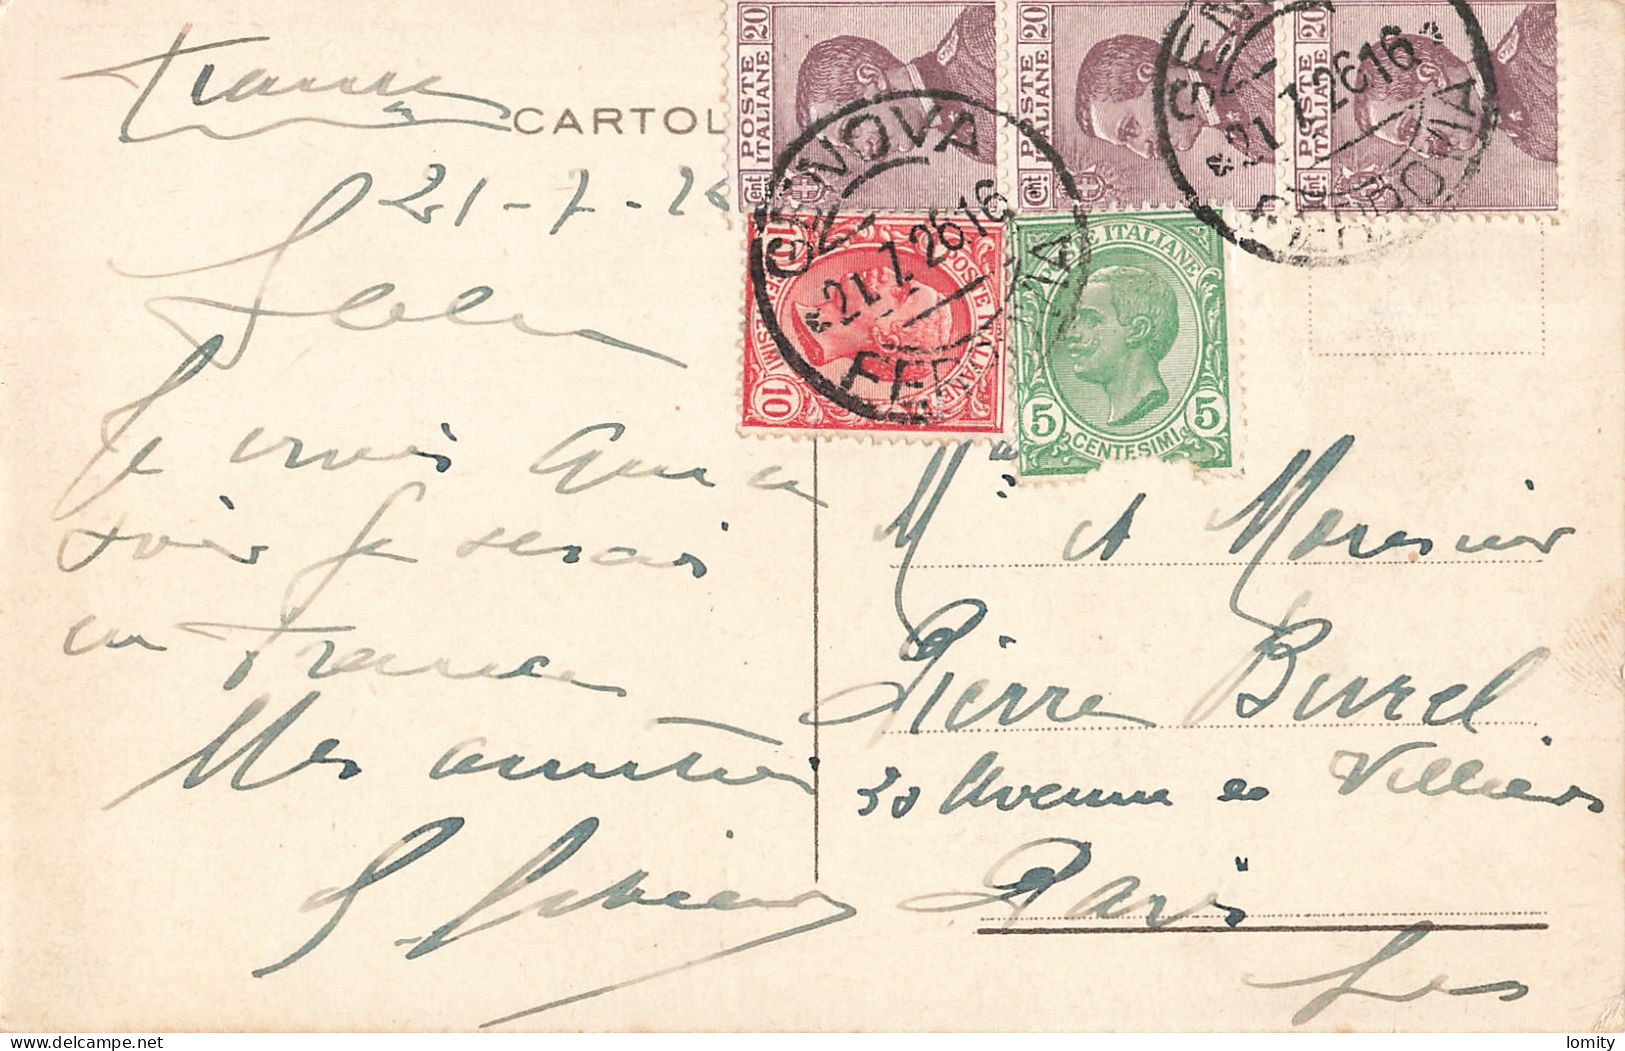 CARTOL
21-7-26
Je crois que ce
soir je serai
en France
Mes amitiés
POSTE ITALIANE
Cent 20
POSTE ITALIANE
Cent 20
POSTE ITALIANE
Cent 20
GENOVA
*21.7.2616
FERROVIA
GENOVA
*21.7.2616*
FERROVIA
10 POSTE ITALIANE
CENTESIMI 10
POSTE ITALIANE
5 CENTESIMI 5
Me et Monsieur
Pierre Burel
30 Avenue de Villiers
Paris
lomity